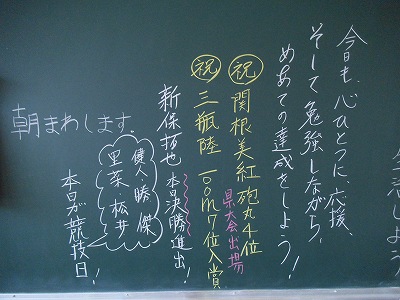 今日も、心ひとつに応援、
そして勉強しながら、
めあての達成をしよう!
祝 関根美紅 砲丸4位
県大会出場
祝 三瓶陸 100m7位入賞
新保拓也 本日決勝進出!
健人・勝・傑
里菜・松井
本日が競技日!
朝まわします。